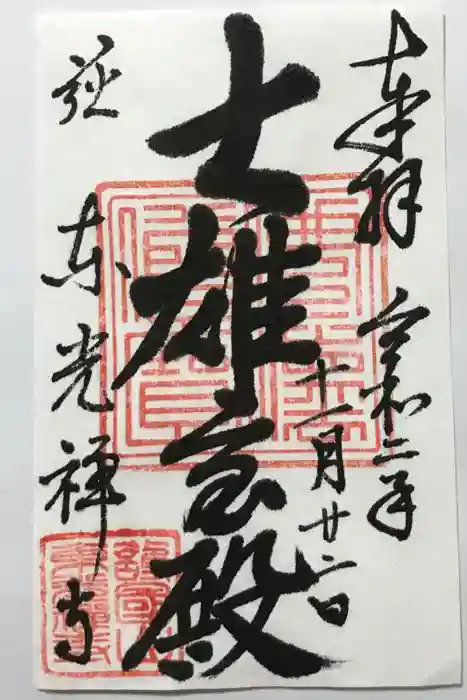 奉拝
令和二年
十一月廿二日
大雄宝殿
萩
東光禅寺